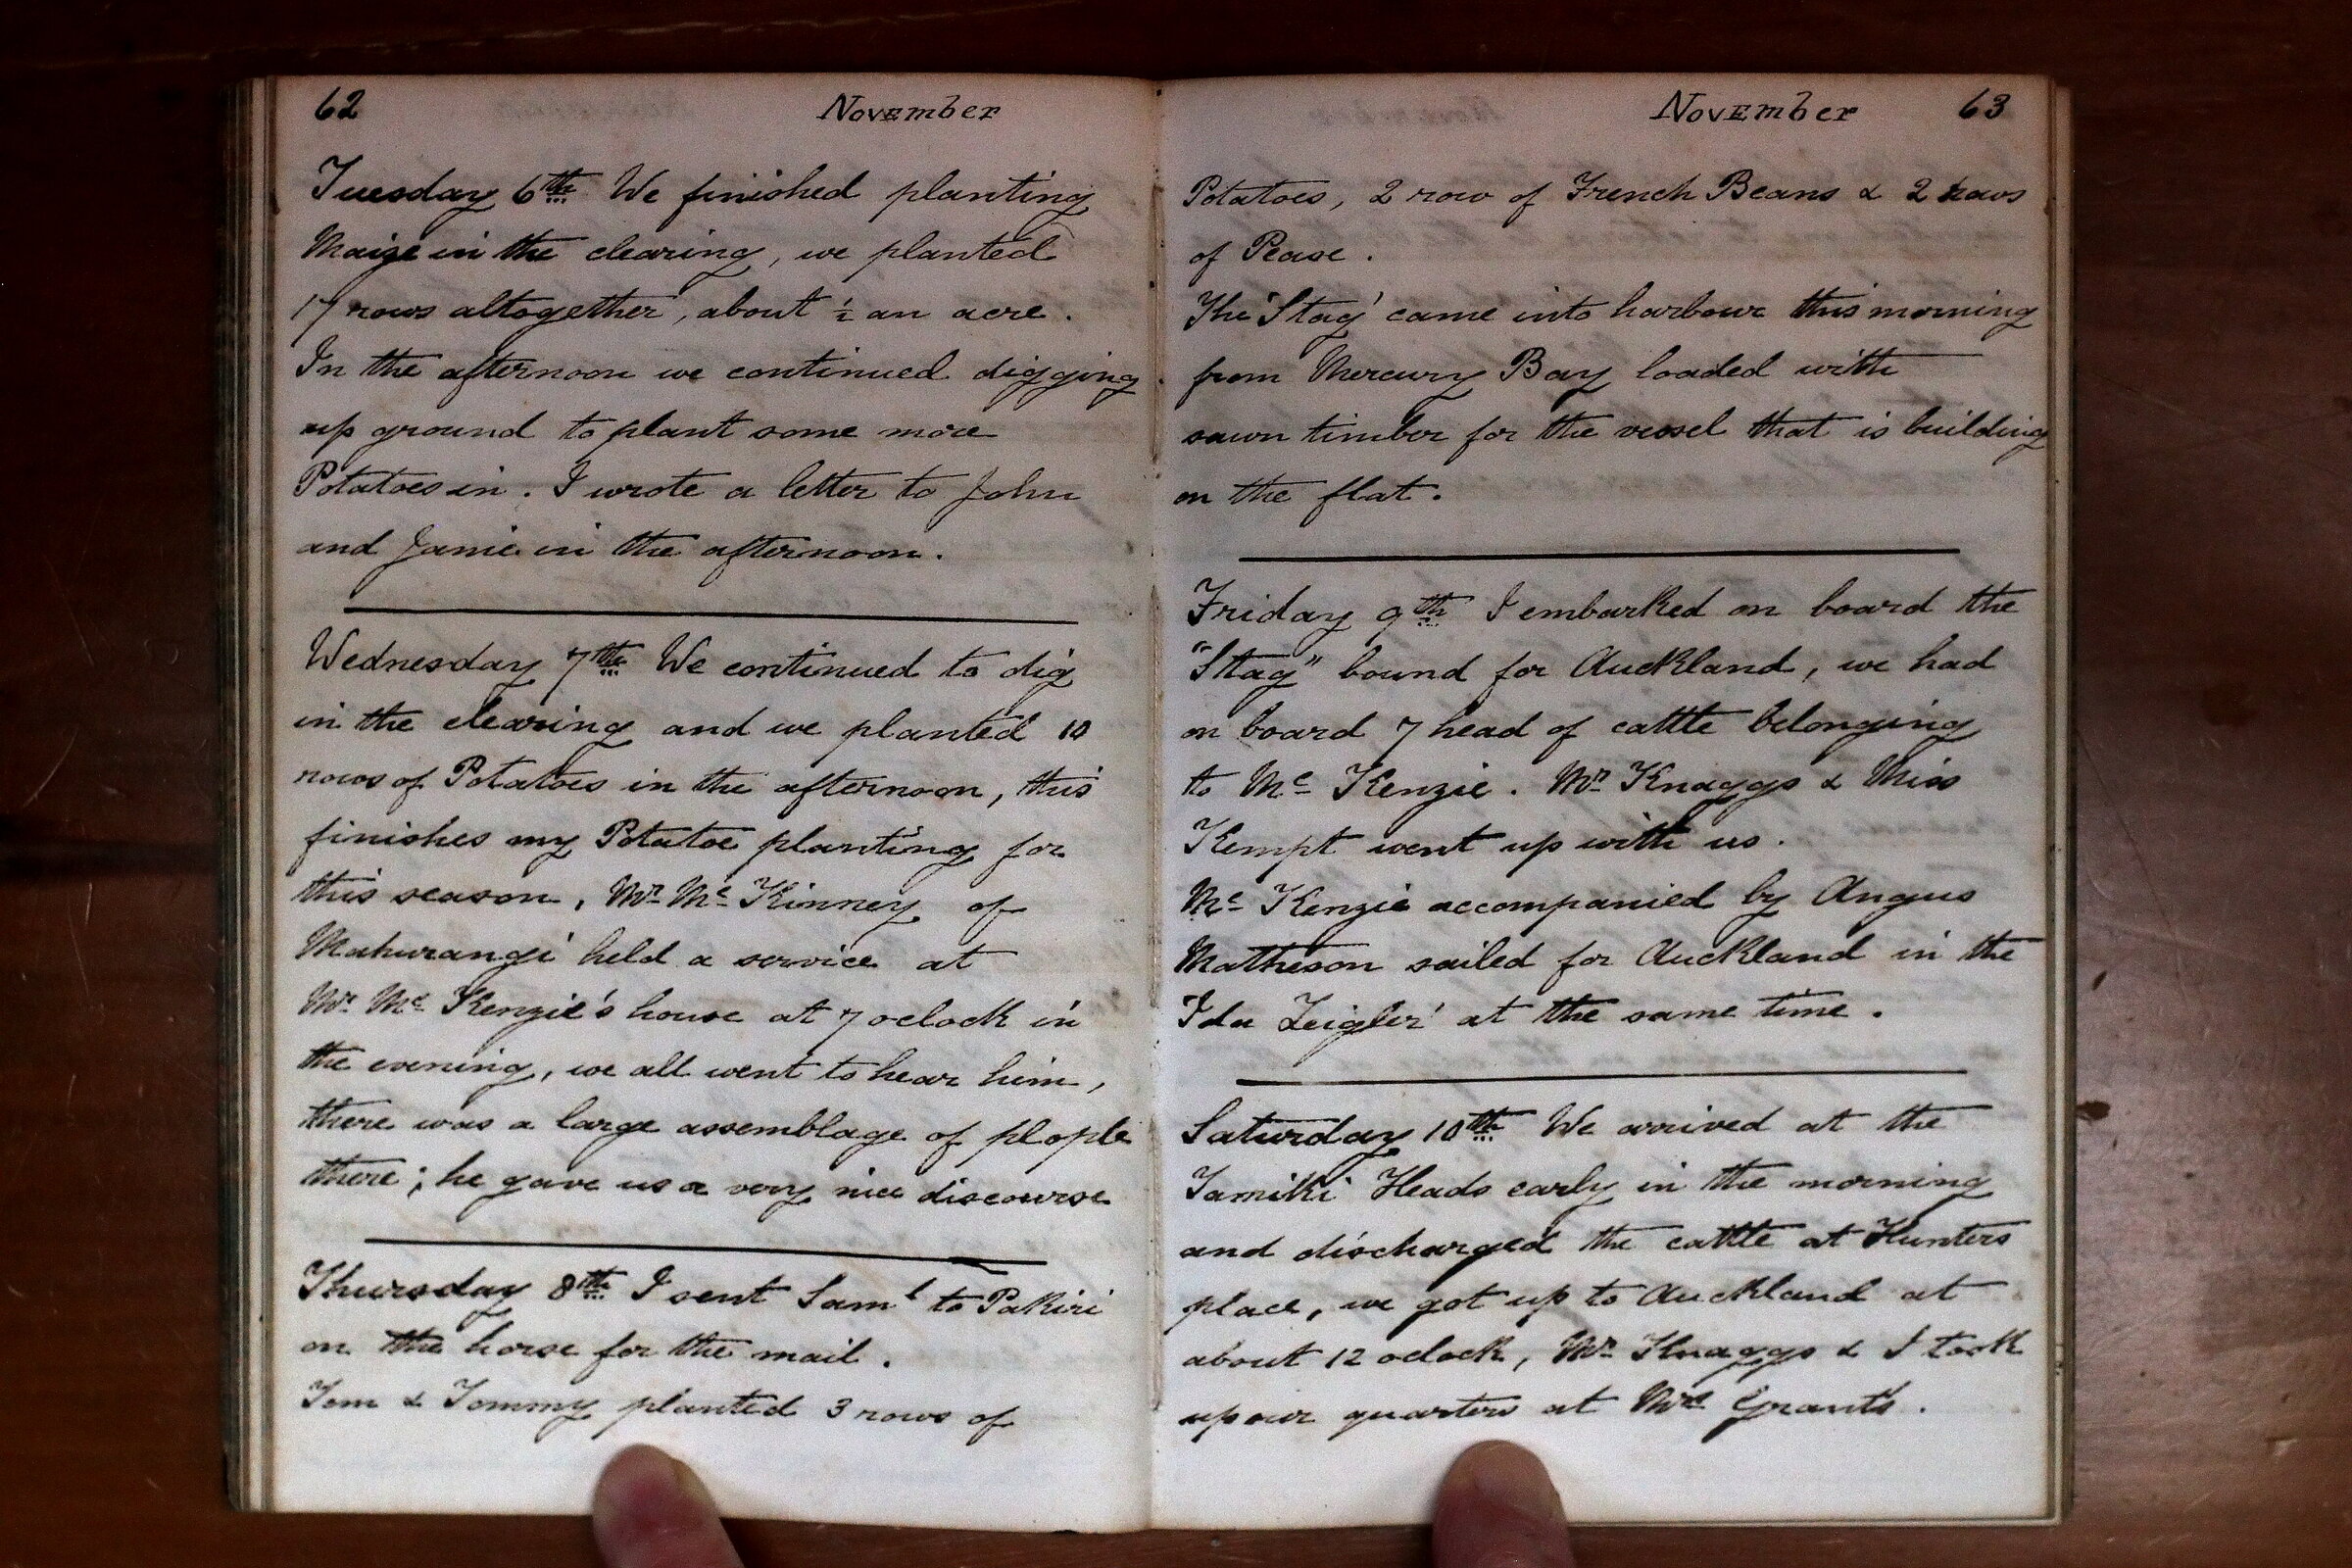 62 November
Tuesday 6th We finished planting
Maize in the clearing, we planted
17 rows altogether, about ½ an acre.
In the afternoon we continued digging
up ground to plant some more
Potatoes in. I wrote a letter to John
and Janie in the afternoon.
Wednesday 7th We continued to dig
in the clearing and we planted 10
rows of Potatoes in the afternoon, this
finishes my Potatoe planting for
this season. Mr Mc Kinney of
Mahurangi held a service at
Mr Mc Kenzie's house at 7 oclock in
the evening, we all went to hear him,
there was a large assemblage of plople
there; he gave us a very nice discourse
Thursday 8th I sent Saml to Pakiri
on the horse for the mail.
Tom & Tommy planted 3 rows of
November 63
Potatoes, 2 row of French Beans & 2 rows
of Pease.
The 'Stag' came into harbour this morning
from Mercury Bay loaded with
sawn timber for the vessel that is building
on the flat.
Friday 9th I embarked on board the
"Stag" bound for Auckland, we had
on board 7 head of cattle belonging
to Mc Kenzie. Mr Knaggs & Miss
Kempt went up with us.
Mc Kenzie accompanied by Angus
Matheson sailed for Auckland in the
Ida Zeigler' at the same time.
Saturday 10th We arrived at the
Tamiki Heads early in the morning
and discharged the cattle at Hunters
place, we got up to Auckland at
about 12 oclock, Mr Knaggs & I took
up our quarters at Mrs Grant's.